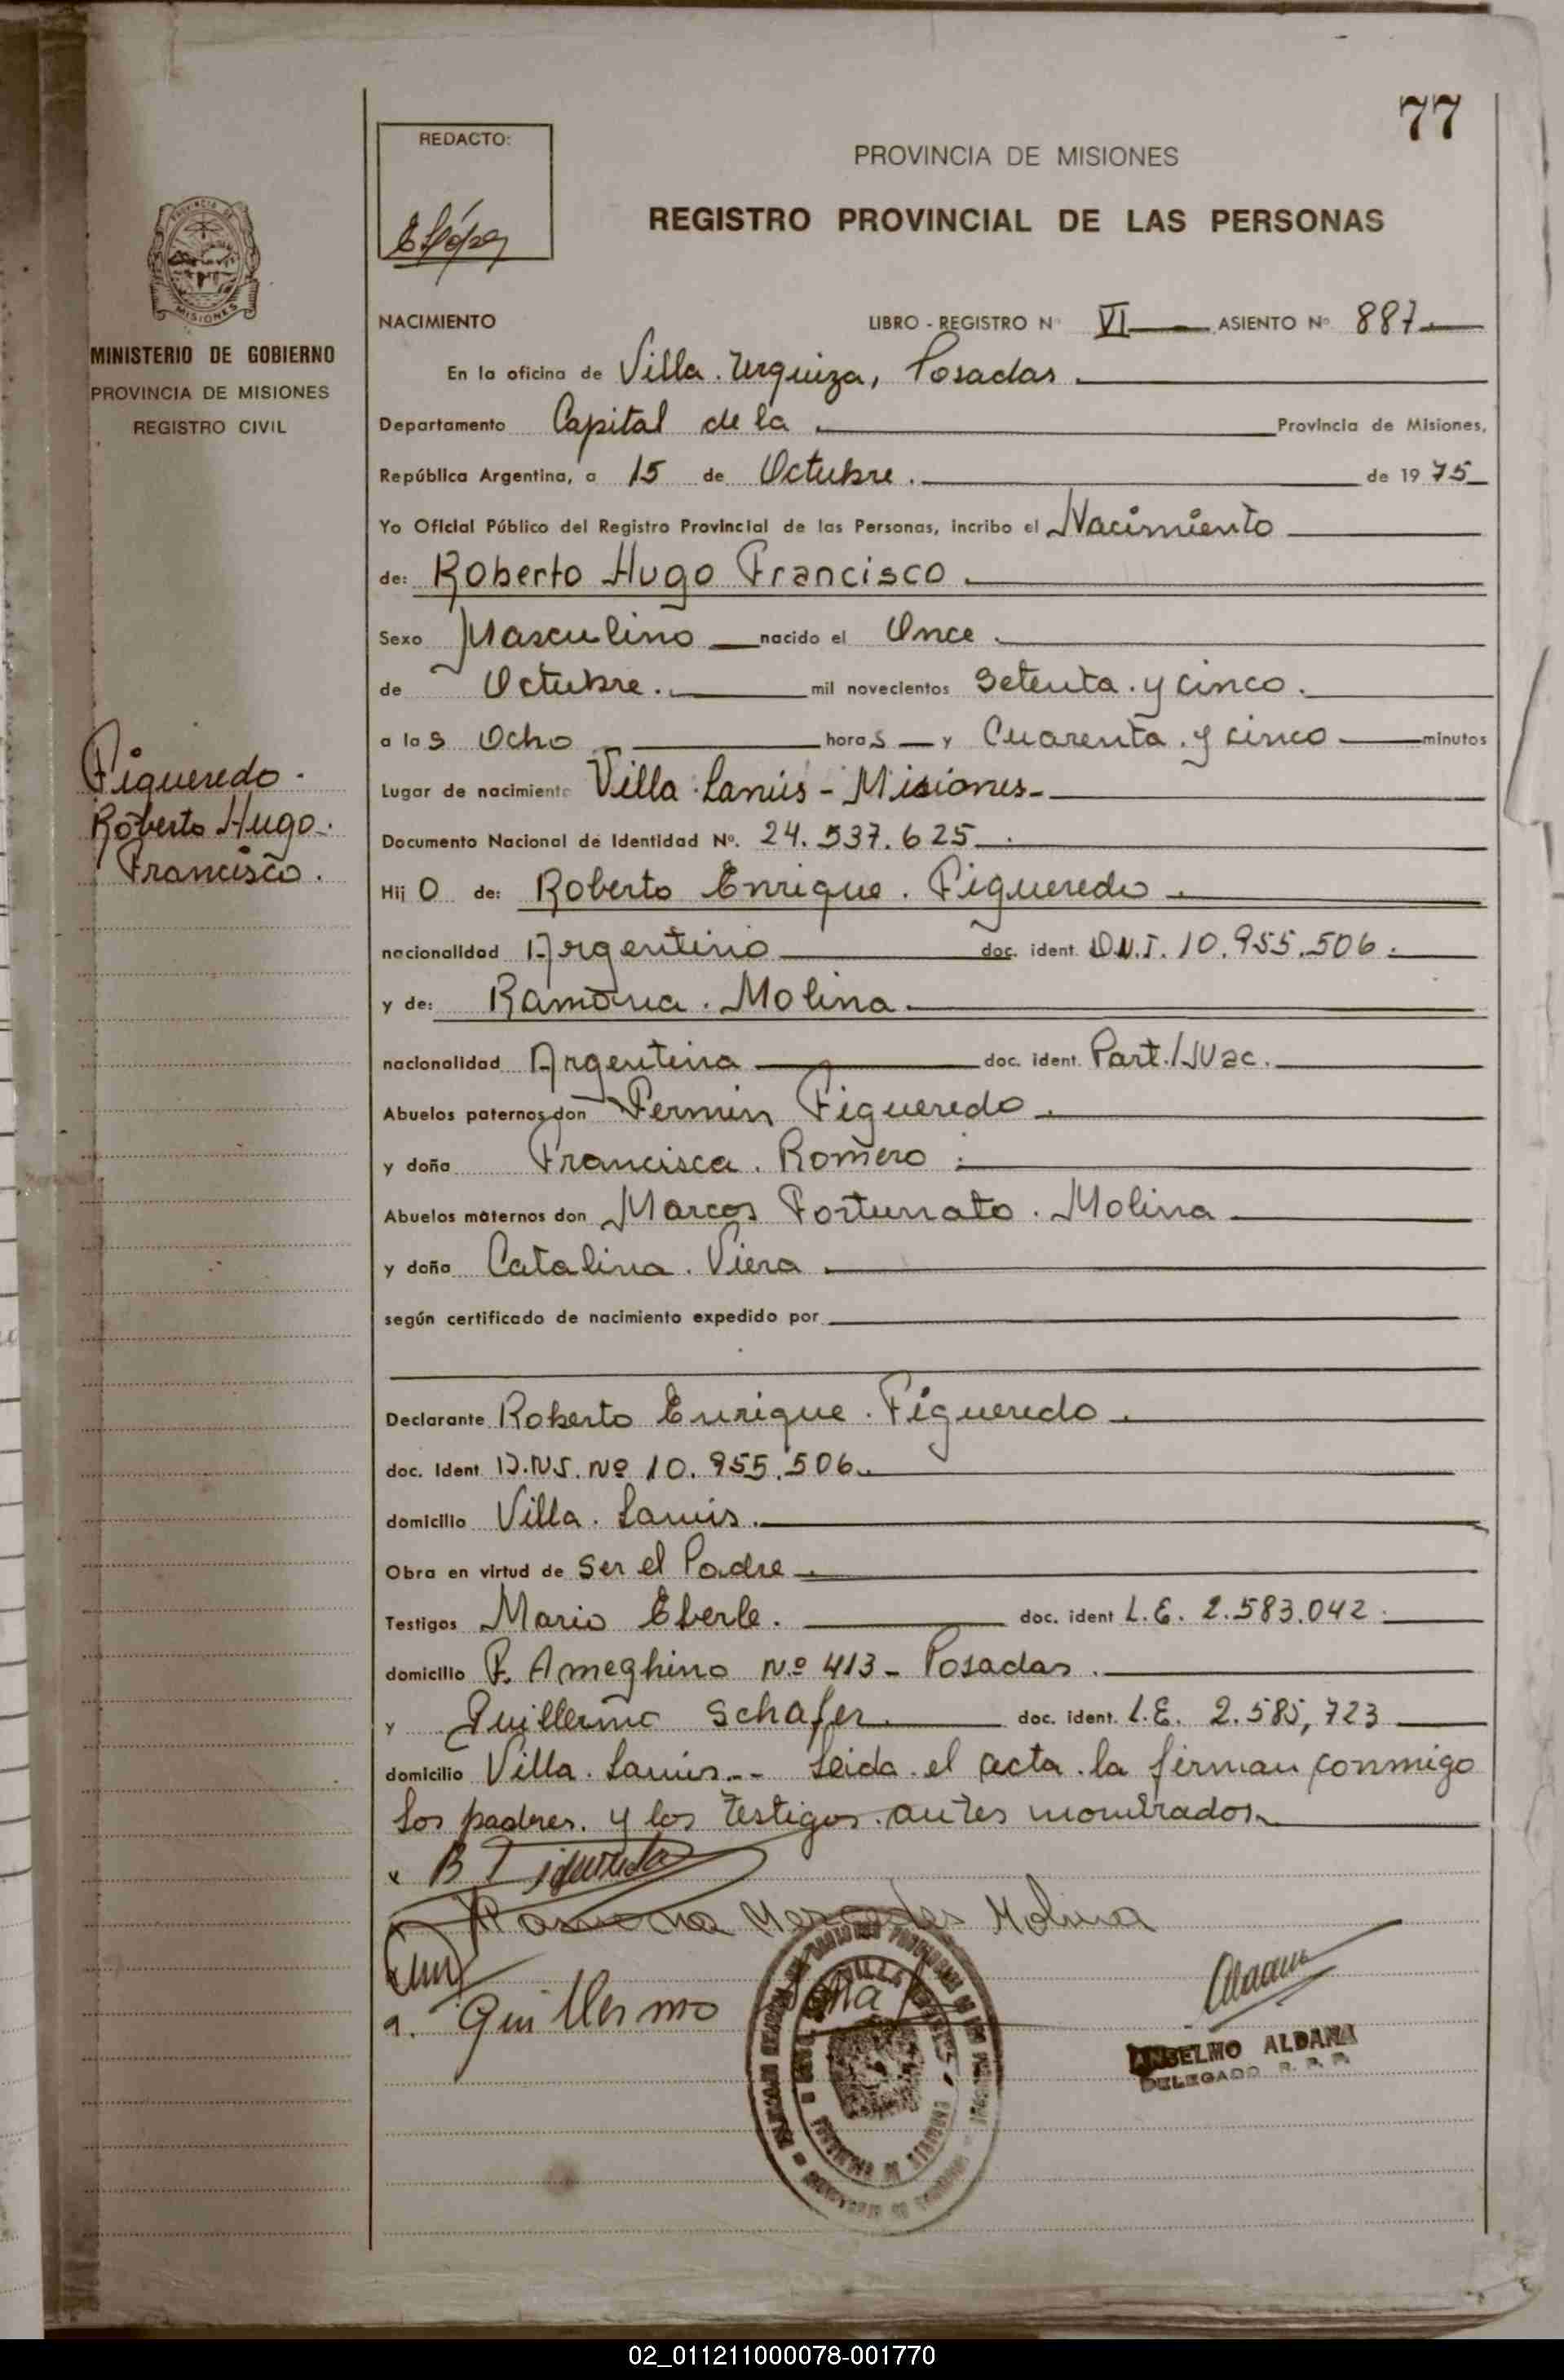 77
REDACTO:
PROVINCIA DE MISIONES
REGISTRO PROVINCIAL DE LAS PERSONAS
MISIONES
MINISTERIO DE GOBIERNO
PROVINCIA DE MISIONES
REGISTRO CIVIL
NACIMIENTO LIBRO - REGISTRO Nº VI ASIENTO Nº 887
En la oficina de Villa. Urquiza, Posadas.
Departamento Capital de la Provincia de Misiones,
República Argentina, a 15 de Octubre. de 1975
Yo Oficial Público del Registro Provincial de las Personas, incribo el Nacimiento
de: Roberto Hugo Francisco.
Sexo Masculino nacido el Once.
de Octubre. mil novecientos Setenta. y cinco.
a las Ocho horas y Cuarenta. y cinco minutos
Figueredo.
Roberto Hugo.
Francisco.
Lugar de nacimiento Villa Lanús - Misiones-
Documento Nacional de Identidad Nº. 24.537.625.
Hijo de: Roberto Enrique. Figueredo.
nacionalidad Argentino doc. ident. D.N.I. 10.955.506.
y de: Ramona. Molina.
nacionalidad Argentina doc. ident. Part./Nac.
Abuelos paternos don Fermin Figueredo.
y doña Francisca. Romero.
Abuelos maternos don Marcos Fortunato. Molina
y doña Catalina. Viera.
según certificado de nacimiento expedido por
Declarante Roberto Enrique. Figueredo.
doc. Ident D.N.I. Nº 10.955.506.
domicilio Villa. Lanús.
Obra en virtud de Ser el Padre.
Testigos Mario Eberle. doc. ident L.E. 2.583.042.
domicilio F. Ameghino Nº 413- Posadas.
y Guillermo Schafer. doc. ident. L.E. 2.585,723
domicilio Villa. Lanús.-- Leida. el acta. la firman conmigo
los padres. y los testigos. antes nombrados.
Figueredo
Ramona Mercedes Molina
Guillermo
ANSELMO ALDANA
DELEGADO R. P. P.
02_011211000078-001770